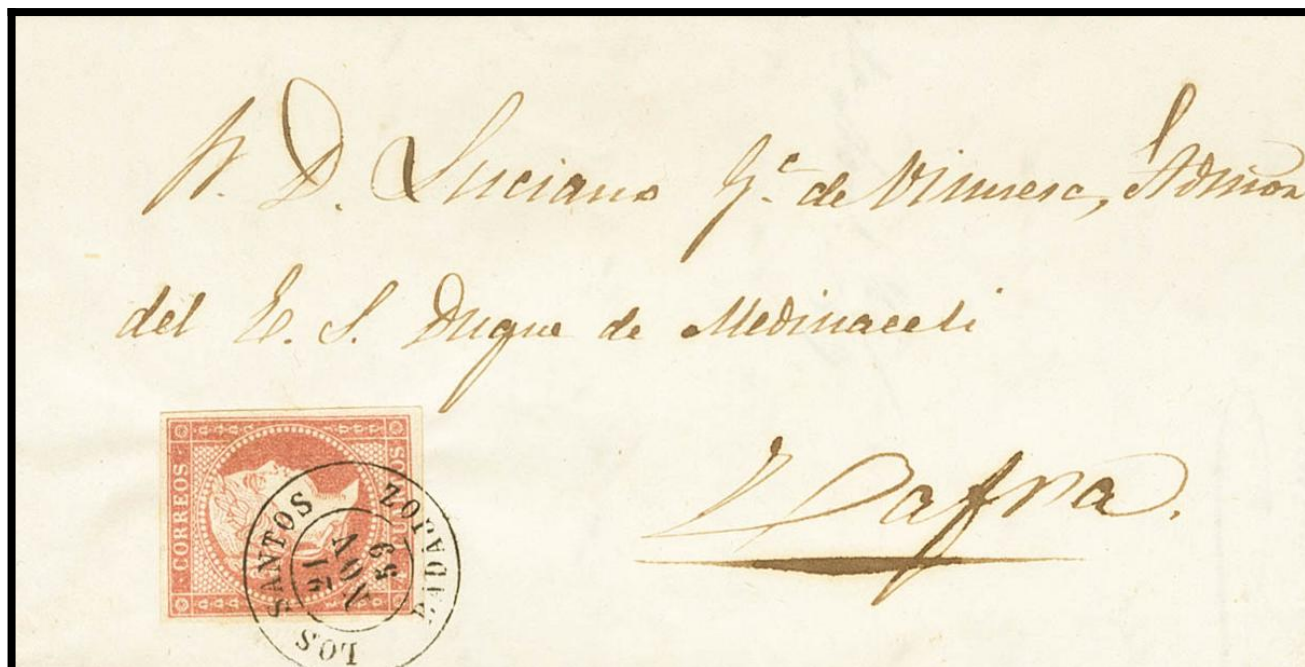 A. D. Luciano G.ª de Vinuesa, Admor
del E. S. Duque de Medinaceli
Zafra.
CORREOS
CUARTOS
LOS SANTOS
BADAJOZ
21
NOV
59